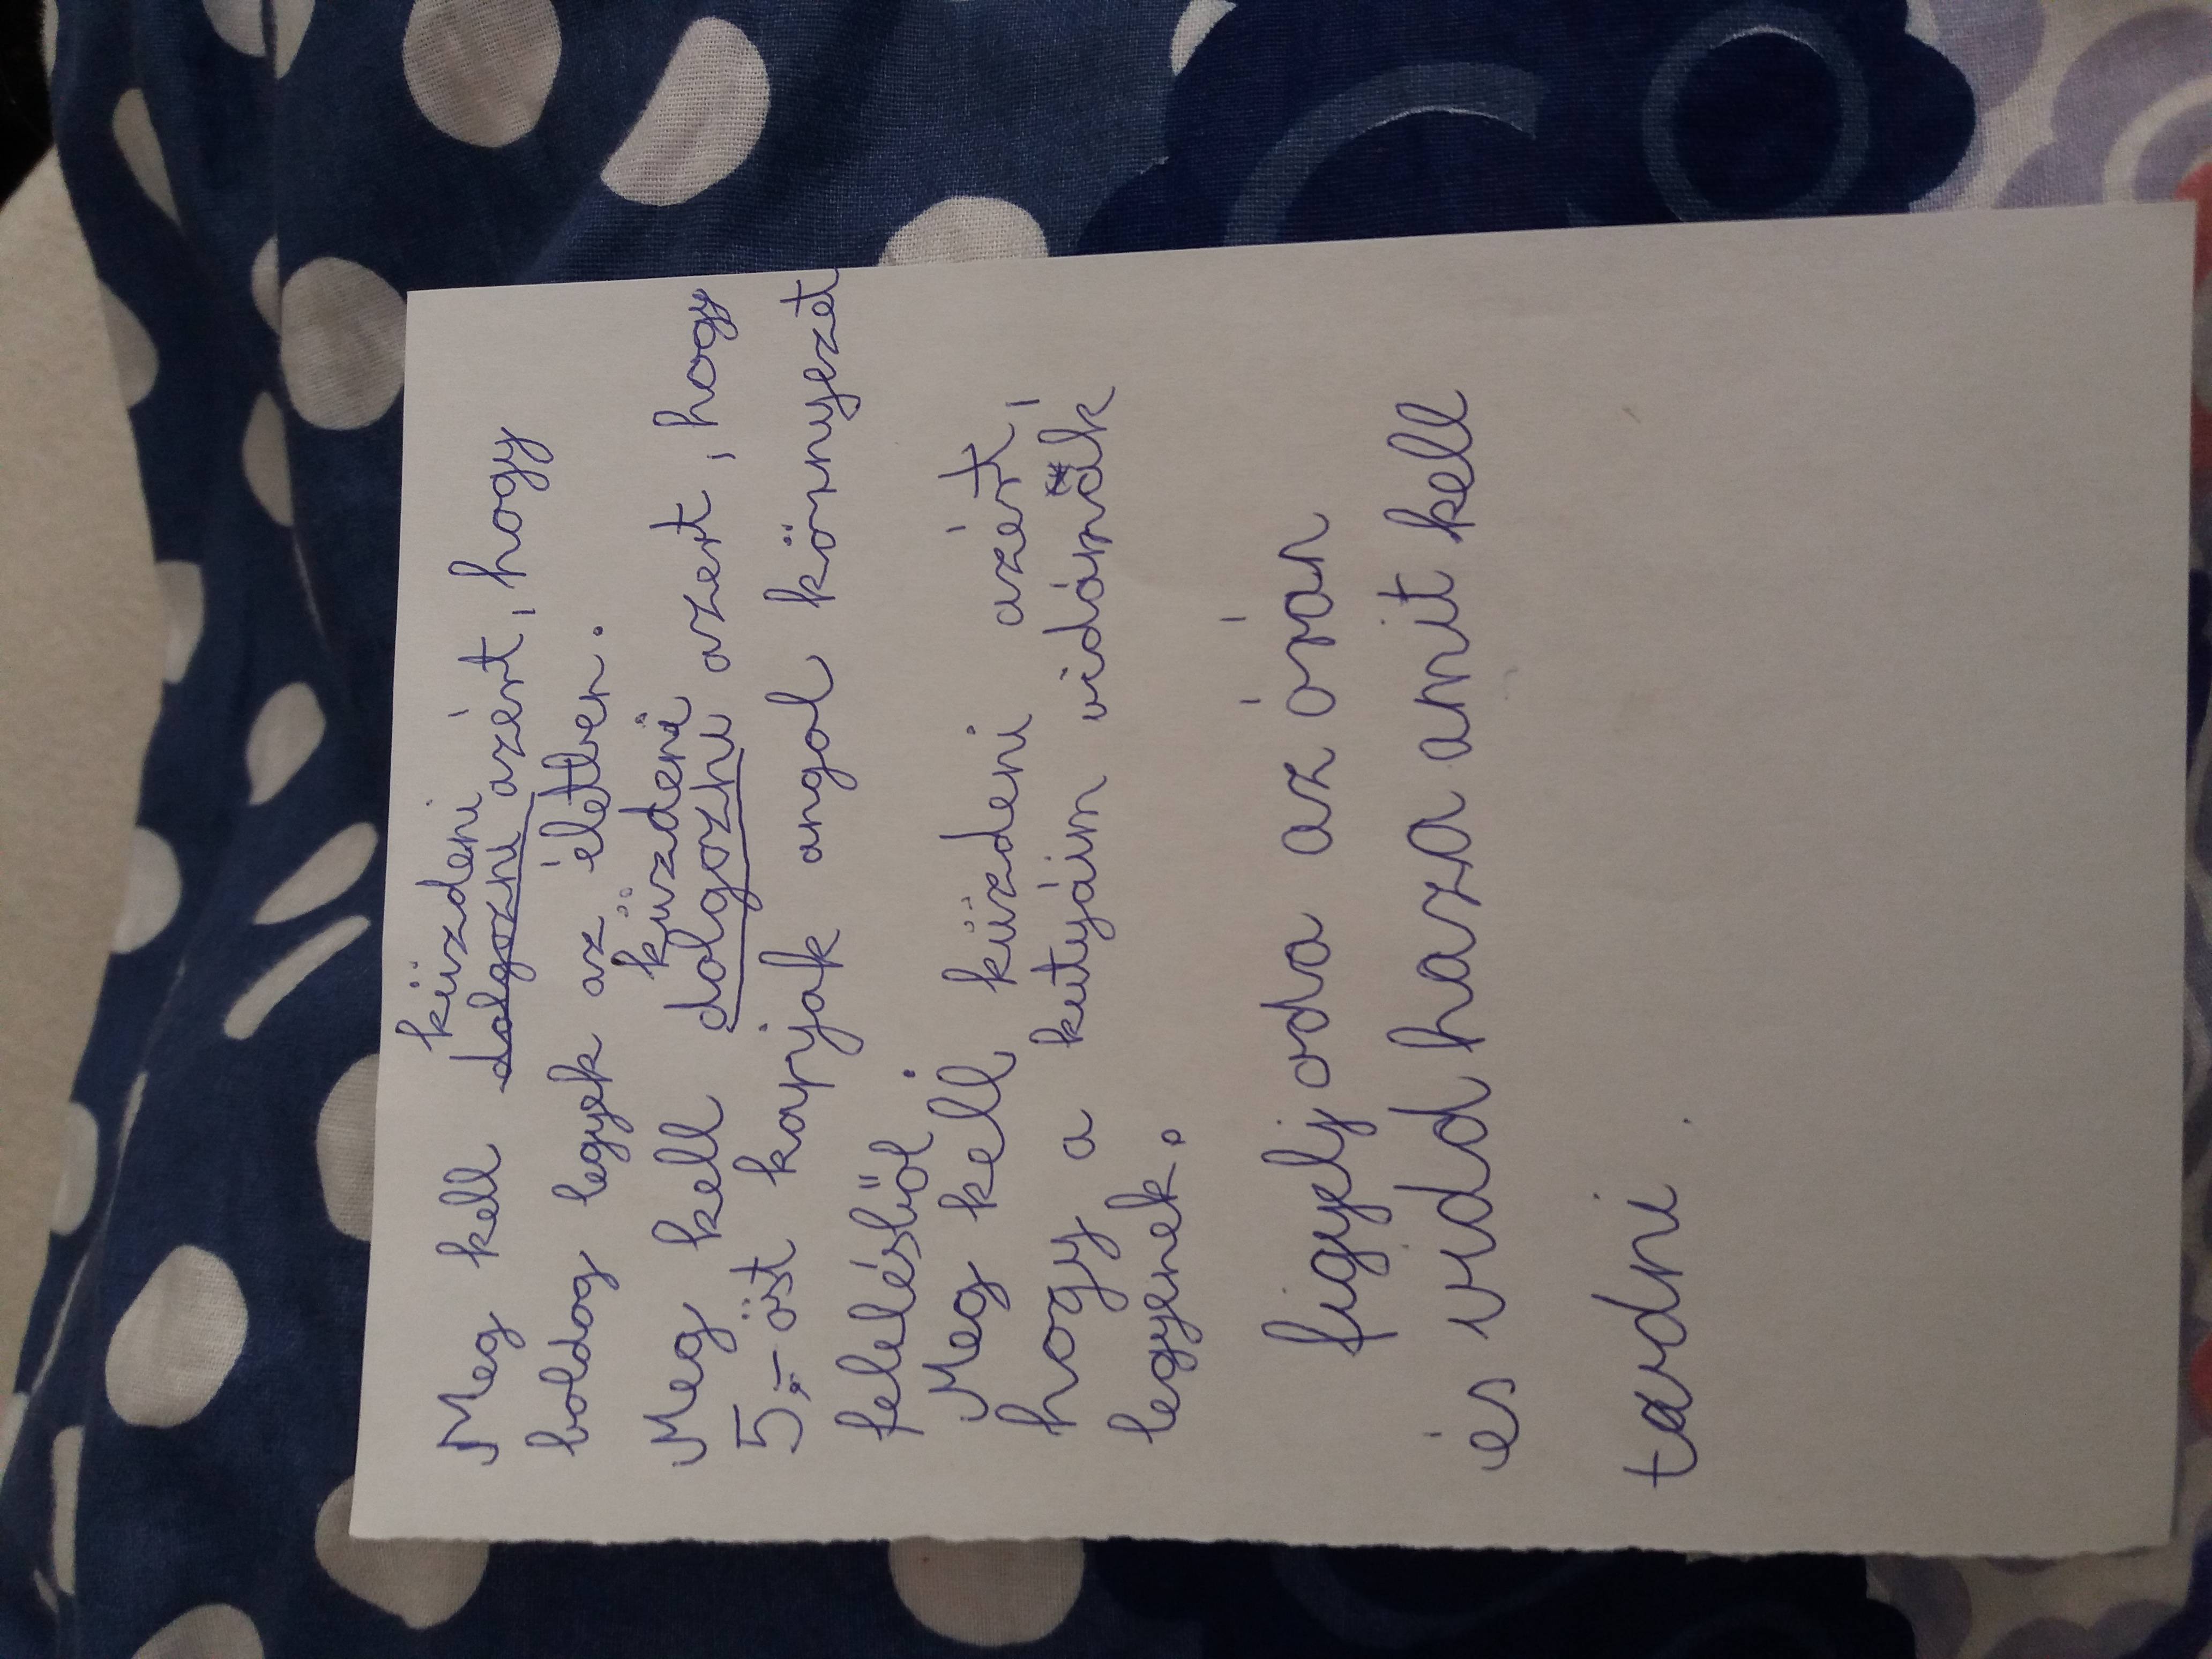 küzdeni
Meg kell dolgozni azért, hogy
boldog legyek az életben.
küzdeni
Meg kell dolgozni azert, hogy
5,-öst kapjak angol környezet
felelésből.
Meg kell küzdeni azért,
hogy a kutyáim vidámak
legyenek.
figyelj oda az órán
és vidd haza amit kell
tudni